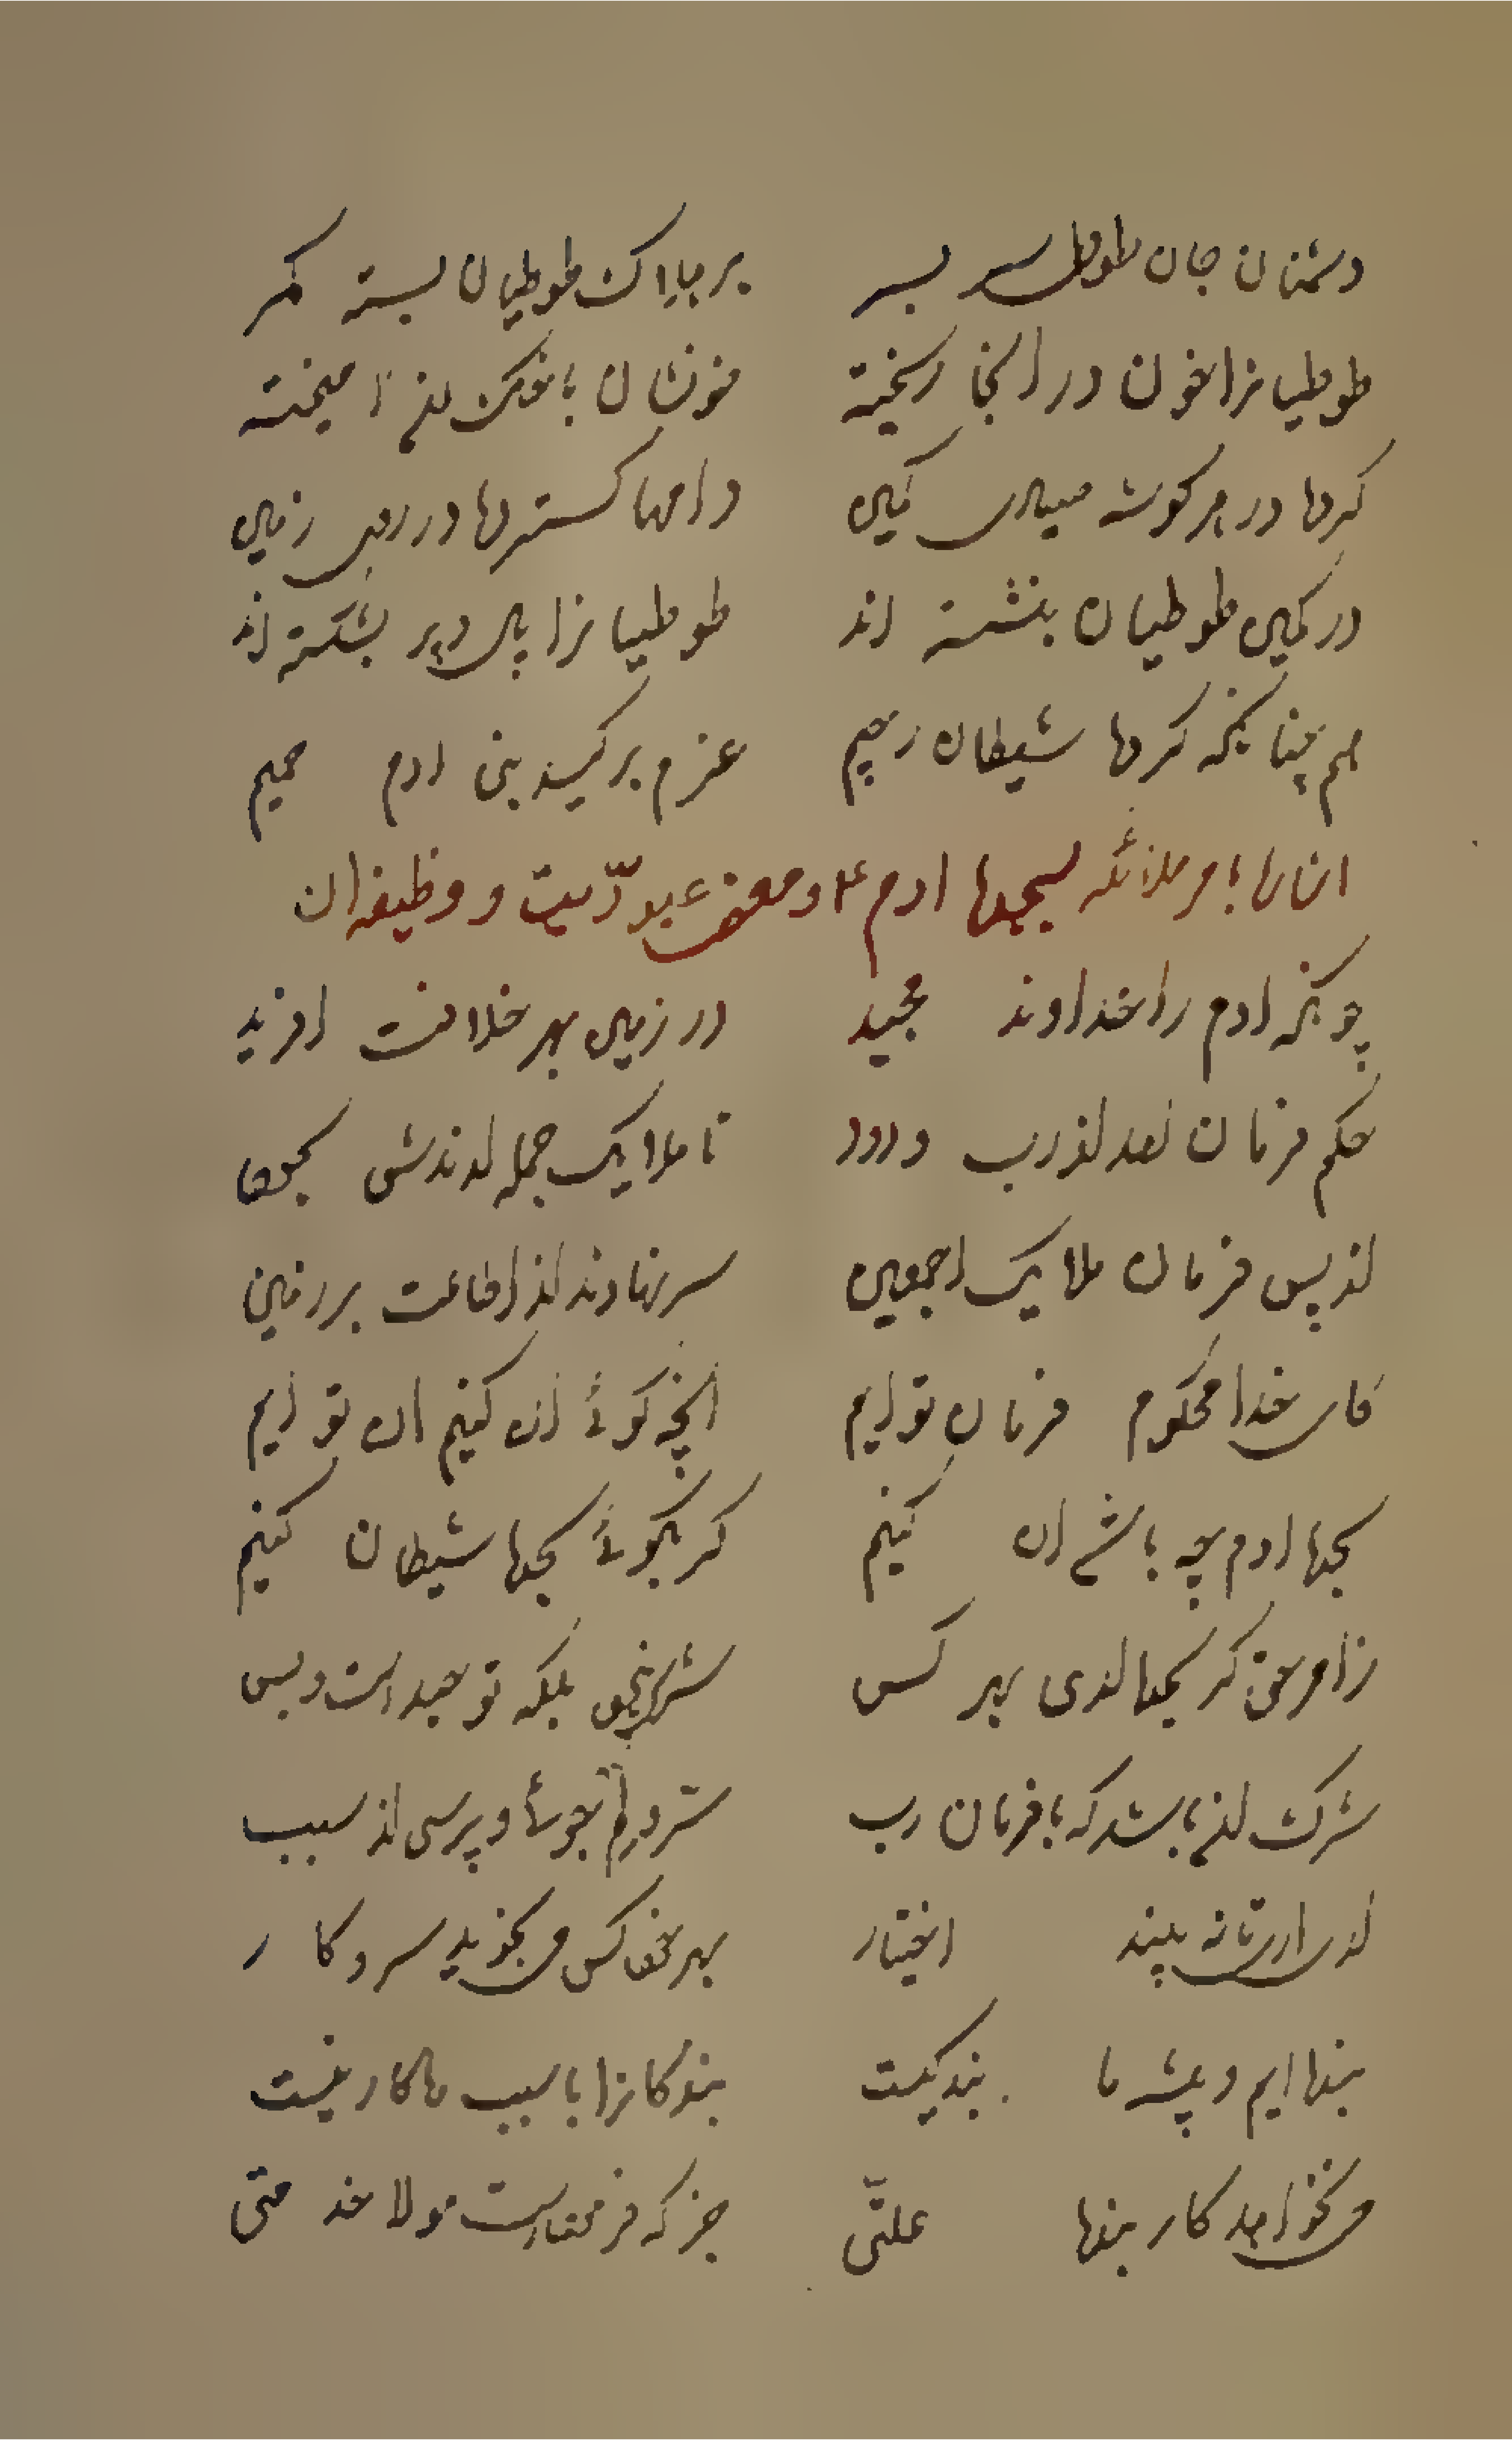 دشمنان جان طوطی سر بسر بر هلاک طوطیان بسته کمر
طوطیانرا خون در انجا ریخته خونشان با خاک ره امیخته
کرده در هر کوشه صیادی کمین دامها کسترده در روی زمین
در کمین طوطیان بنشسته اند طوطیانرا بال و پر بشکسته اند
هم چنانکه کرده شیطان رجیم عزم بر کید بنی ادم صمیم
اشاره بامر ملائکه بسجده ادم ع و معنی عبودّیت و وظیفه ان
چونکه ادم را خداوند مجید در زمین بهر خلافت افرید
حکم فرمان شد از رب ودود تا ملایک جمله ارندش سجود
از پس فرمان ملایک اجمعین سر نهادند از اطاعت بر زمین
کای خدا محکوم فرمان توایم انچه کوئی ان کنیم ان توایم
سجده ادم چه باشد ان کنیم کر بکوئی سجده شیطان کنیم
زامر حق کر سجده اری بهر کس شرک نبود بلکه توحید است و بس
شرک ان باشد که با فرمان رب سر در اری بجوئی و پرسی از سبب
ای ارسانه بیند اختیار بهر خود کس می بجوید سر و کار
بنده ایم و پیشه ما بندکیست بندکانرا با سبب ها کار نیست
می نخواهد کار بنده علتّی جز که فرموداست مولا خدمتی